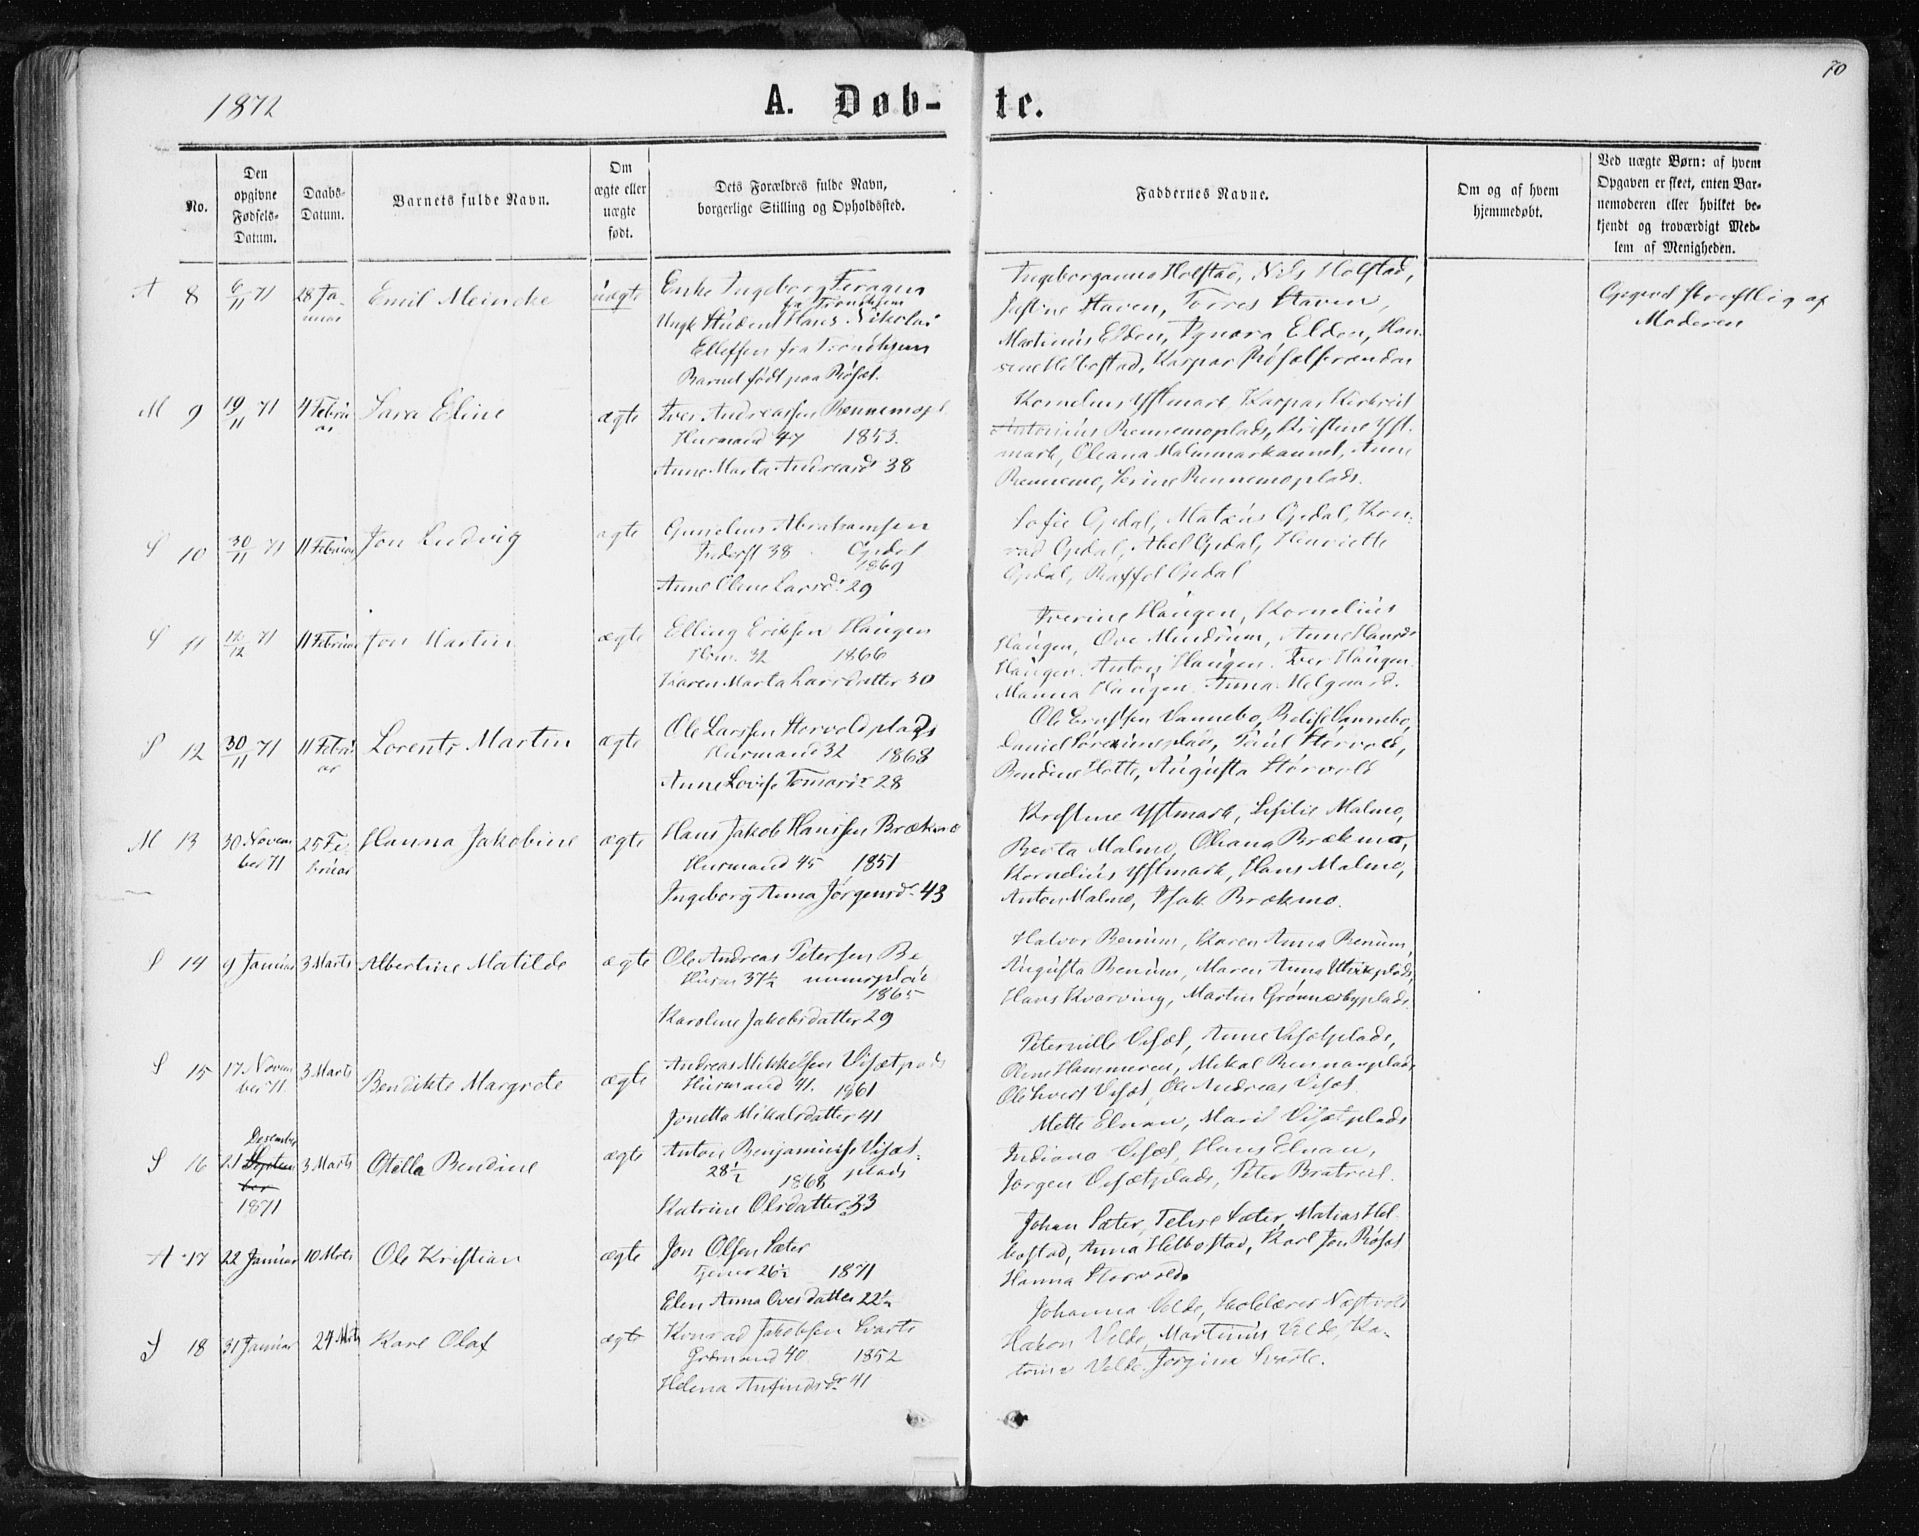 1872
A. Døb-te.
70
No.
Den opgivne Fødsels-Datum.
Daabs-Datum.
Barnets fulde Navn.
Om ægte eller uægte født.
Dets Forældres fulde Navn, borgerlige Stilling og Opholdssted.
Faddernes Navne.
Om og af hvem hjemmedøbt.
Ved uægte Børn: af hvem Opgaven er skeet, enten Barnemoderen eller hvilket bekjendt og troværdigt Medlem af Menigheden.
A 8 6/11 71 28 Januar Emil Meincke uægte
Enke Ingeborg Feragen
fra Tronhjem
Ungk Student Hans Nikolai
Ellefsen fra Tronhjem
Barnet født paa Røset.
Ingeborganna Holstad, Nils Holstad,
Justine Staven, Torres Staven,
Martinus Elden, Elden, Han-
Helbostad, Kaspar
Opgivet skriftlig af
Moderen
M 9 19/11 71 4 Februar Sara Eline ægte
Iver Andreassen Rennemspl.
Husmand 47 1853.
Anne Marta Andreasd. 38
Kornelius Ystmark, Kaspar
Antonius Rennemoplads, Kristine Yst-
mark, Oleana Malmmarkaunet, Anne
Rennemo, Serine Rennemoplads.
S 10 30/11 71 11 Februar Jon Ludvig ægte
Gunelius Abrahamsen
Inderst 38 Opdal
1869
Anne Oline Larsd. 29
Sofie Opdal, Matæus Opdal, Kon-
rad Opdal, Abel Opdal, Henriette
Opdal, Opdal
S 11 12/12 71 11 Februar Jon Martin ægte
Elling Eriksen Haugen
Hsm. 32 1866
Karen Marta Larsdatter 30
Iverine Haugen, Kornelius
Haugen, Ove Mindrum, Anne Hansd.
Haugen. Anton Haugen. Iver Haugen.
Manna Haugen. Anna Melgaard.
S 12 30/11 71 11 Februar Lorents Martin ægte
Ole Larsen Storvoldplads
Husmand 32 1868
Anne Lovise Tomasd. 28
Ole Vannebo, Vannebo,
Daniel Paul Storvold,
Bendine Holte, Augusta Storvold
M 13 30 November 71 25 Februar Hanna Jakobine ægte
Hans Jakob Hansen Brækmo
Husmand 45 1851
Ingeborg Anna Jørgensd. 43
Kristine Ystmark, Sesilie Malmo,
Berta Malmo, Oleana Brækmo,
Kornelius Ystmark, Hans Malmo,
Anton Malmo, Isak Brækmo.
S 14 9 Januar 3 Marts Albertine Matilde ægte
Ole Andreas Petersen Be-
Husm 37½ numsplads
1865
Karoline Jakobsdatter 29
Halvor Benum, Karen Anna Benum,
Augusta Benum, Maren Anna
Hans Kvarving, Martin Grønnesbyplads.
S 15 17 November 71. 3 Marts Bendikte Margrete ægte
Andreas Mikkelsen Visætplads
Husmand 41. 1861
Jonetta Mikalsdatter 41
Peternille Visæt, Anne Visætplads,
Oline Hammeren, Mikal
Visæt, Ole Andreas Visæt
S 16 21 Desember 1871 3 Marts Otelia Bendine ægte
Anton Benjaminss Visæt-
28½ 1868 plads
Katrine Olsdatter 33
Mette Elnan, Marit Visætplads
Indiana Visæt, Hans Elnan,
Jørgen Visætplads, Peter Bratreit.
A 17 22 Januar 10 Marts Ole Kristian ægte
Jon Olsen Sæter
Tjener 26½ 1871
Elen Anna Ovesdatter 22½
Johan Sæter, Sæter, Matias Hel-
bostad, Anna Helbostad, Karl Jon Røsæt
Hanna Storvold.
S 18 31 Januar 24 Marts Karl Olaf ægte
Konrad Jakobsen Svarte
Grdmand 40 1852
Helena Anfindsdr 41
Johanna Velde, Næstvold
Hakon Velde, Martinus Velde, Ka-
trine Velde. Jørgine Svarte.